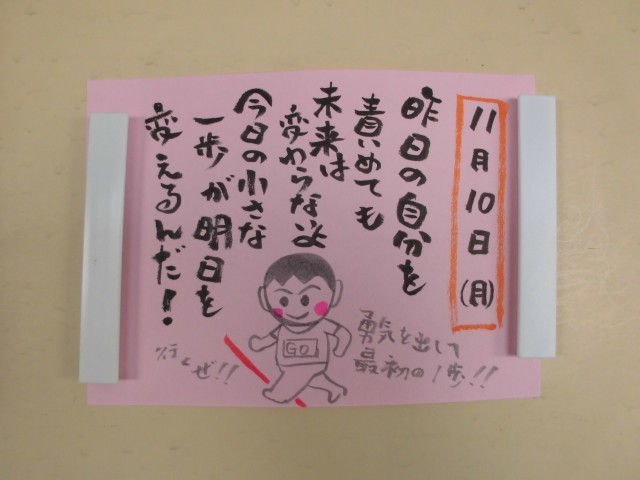 11月10日(月)
昨日の自分を
責いめても
未来は
変わらないよ
今日の小さな
一歩が明日を
変えるんだ!
勇気を出して
最初の1歩!!
GO
行くぜ!!